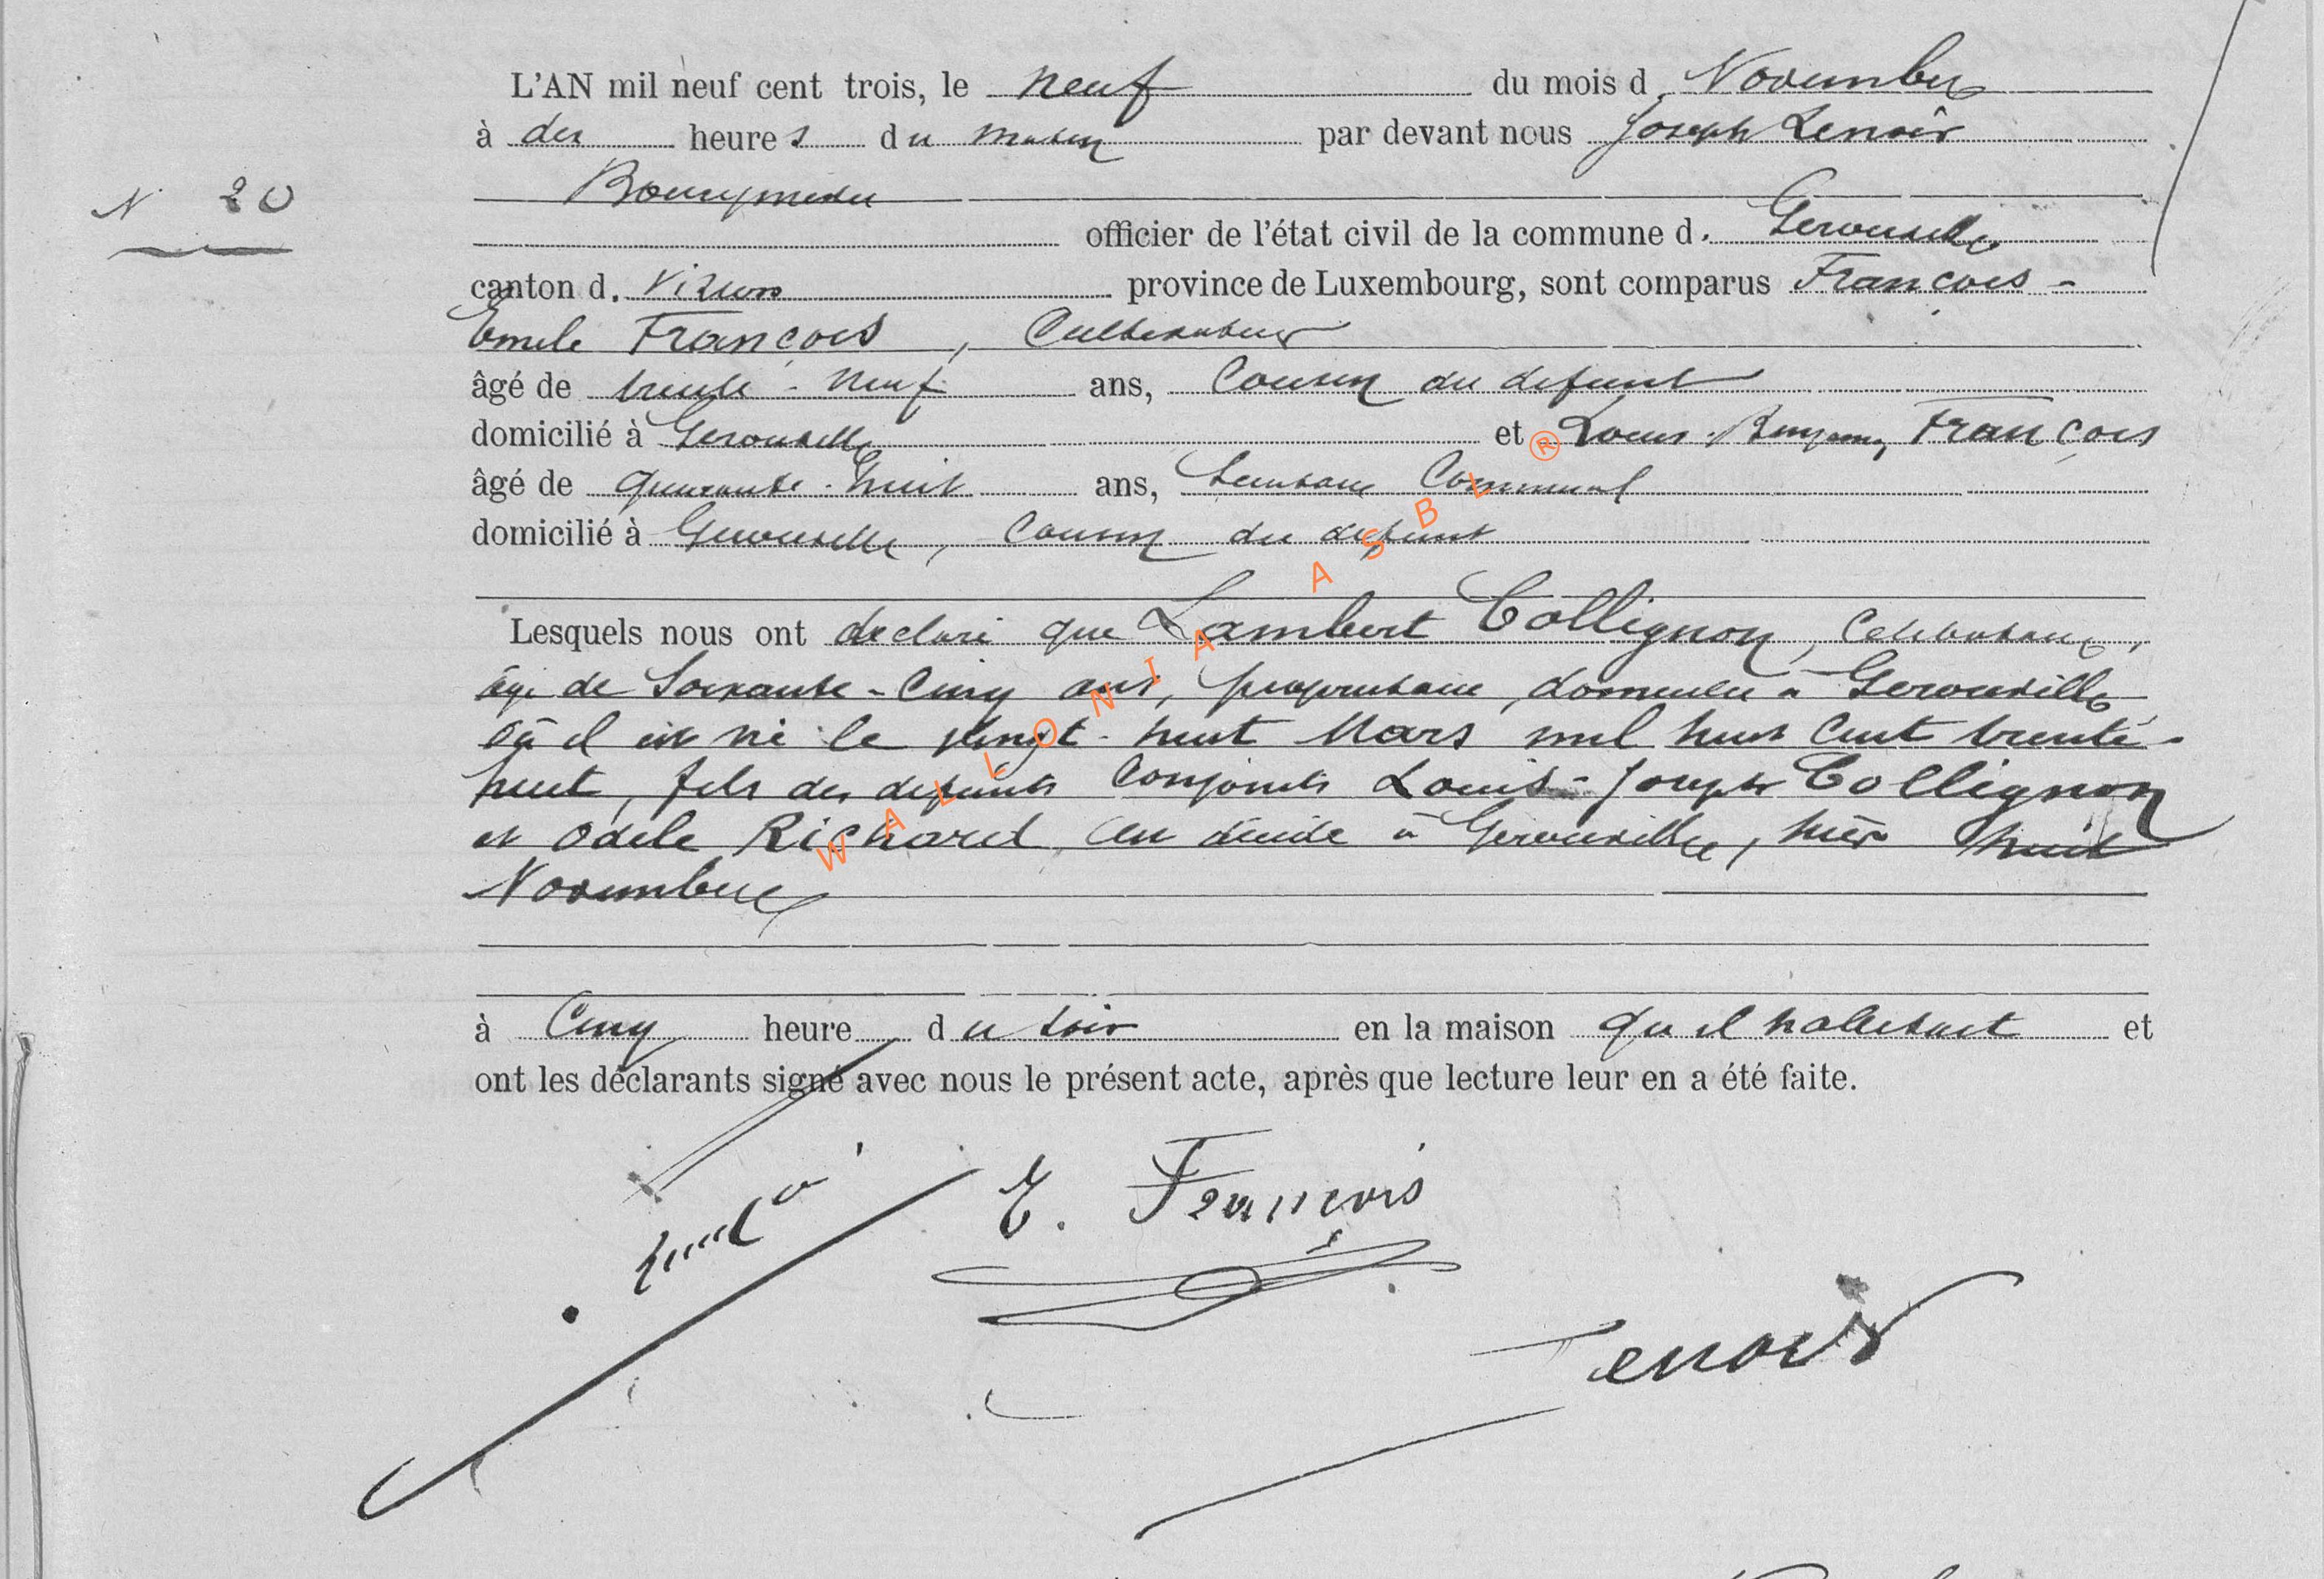 L'AN mil neuf cent trois, le neuf du mois d. Novembre
à dix heures du matin par devant nous Joseph Lenoir
N 20
Bourgmestre
officier de l'état civil de la commune d. Gerouville
canton d. Virton province de Luxembourg, sont comparus François-
Emile François, Cultivateur
âgé de trente-neuf ans, Cousin du defunt
domicilié à Gerouville et Louis Benjamin François
âgé de quarante-huit ans, Communal
domicilié à Gerouville, Cousin du defunt
Lesquels nous ont declaré que Lambert Collignon, Celibataire,
âgé de Soixante-Cinq ans, proprietaire, domicilié à Gerouville
où il est né le vingt-huit Mars mil huit Cent trente-
huit, fils des defunts Conjoints Louis-Joseph Collignon
et Odile Richard, est décédé à Gerouville, hier huit
Novembre
à Cinq heure du soir en la maison qu'il habitait et
ont les déclarants signé avec nous le présent acte, après que lecture leur en a été faite.
E. François
Lenoir
WALLONIA ASBL ®